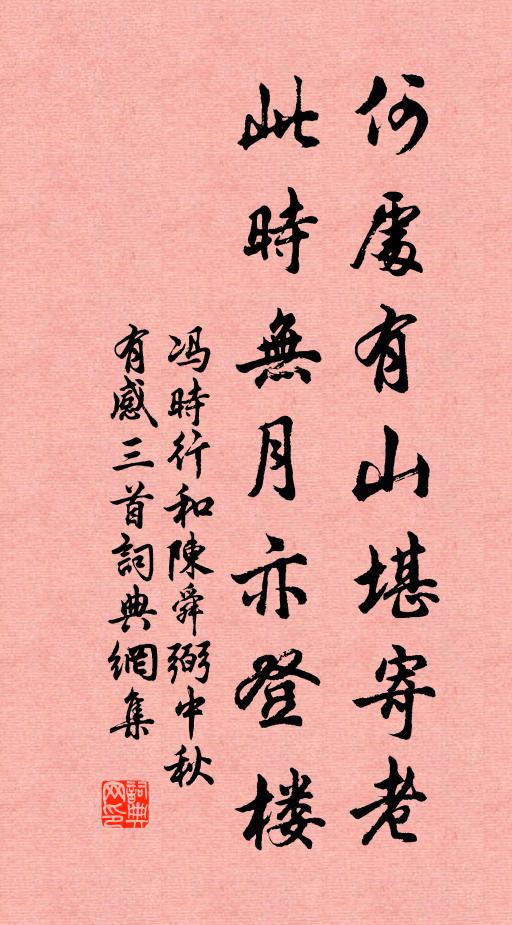 何處有山堪寄老
此時無月亦登楼
冯時行和陳舜弼中秋
有感三首詞典網集
詞典网印